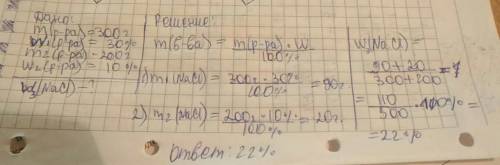 Дано:
m(р-ра)=300г
w₁(р-ра)= 30%
m₂(р-ра)=200г
w₂(р-ра)= 10%
w₃(NaCl)-?
Решение:
m(в-ва)= m(р-ра)·W / 100%
1) m₁(NaCl)= 300г·30% / 100% = 90г.
2) m₂(NaCl)= 200г·10% / 100% =20г.
w₃(NaCl)=
= 90+20 / 300+200 =
= 110 / 500 · 100% =
=22%
Ответ: 22%